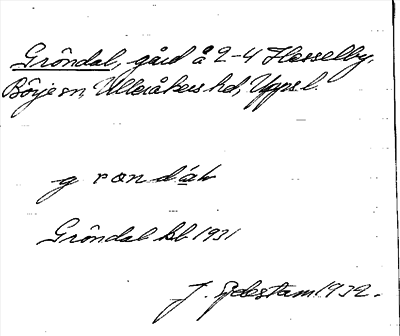 Gröndal, gård å 2-4 Hesselby,
Börje sn, Ulleråkers hd, Uppsl.
Gröndal kbl 1931
J. 1932.